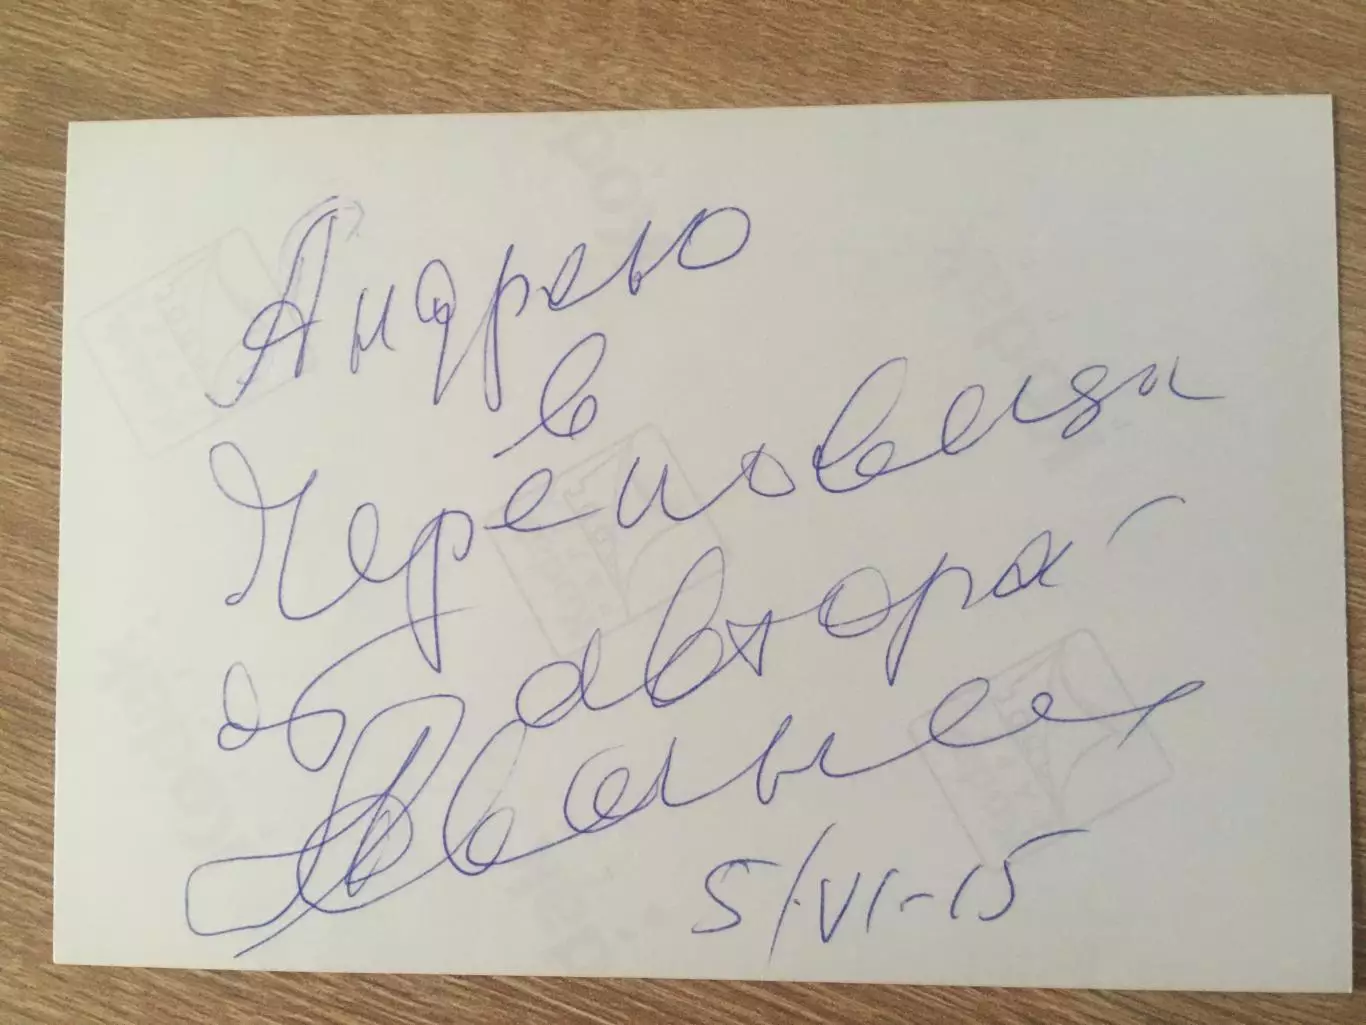 Андрею
в
Череповец
от автора
5/VI-15